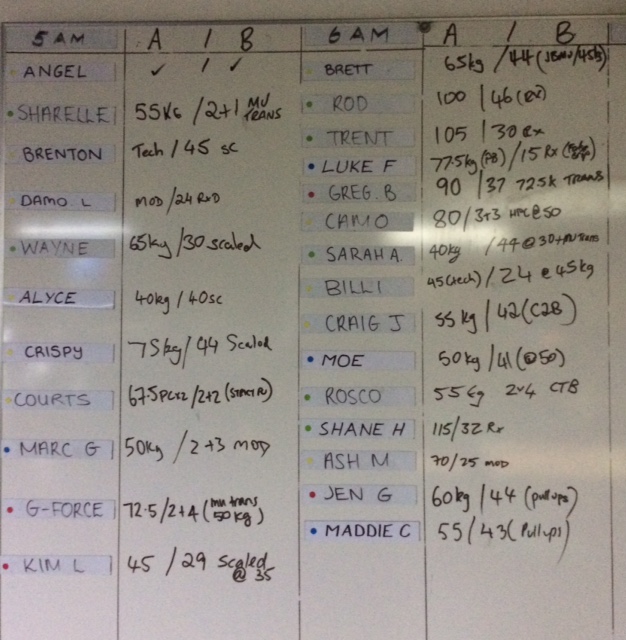 5 AM A / B
ANGEL ✓ / ✓
SHARELLE 55KG / 2+1 MU TRANS
BRENTON Tech / 45 SC
DAMO L MOD / 24 RxD
WAYNE 65kg / 30 scaled
ALYCE 40kg / 40sc
CRISPY 75kg / 44 Scaled
COURTS 67.5 / 2+2
MARC G 50kg / 2+3 MOD
G-FORCE 72.5 / 2+4 (mu trans 50kg)
KIM L 45 / 29 scaled @ 35
6 AM A / B
BRETT 65kg / 44
ROD 100 / 46 (RX)
TRENT 105 / 30 Rx
LUKE F 77.5kg (PB) / 15 Rx
GREG. B 90 / 37 72.5k TRANS
CAMO 80 / 3+3 HPC @ 50
SARAH A. 40kg / 44 @ 30 + MU Trans
BILLI 45 (tech) / 24 @ 45kg
CRAIG J 55 kg / 42 (C2B)
MOE 50kg / 41 (@50)
ROSCO 55kg 2+4 CTB
SHANE H 115 / 32 Rx
ASH M 70 / 25 MOD
JEN G 60kg / 44 (pullups)
MADDIE C 55 / 43 (Pullups)